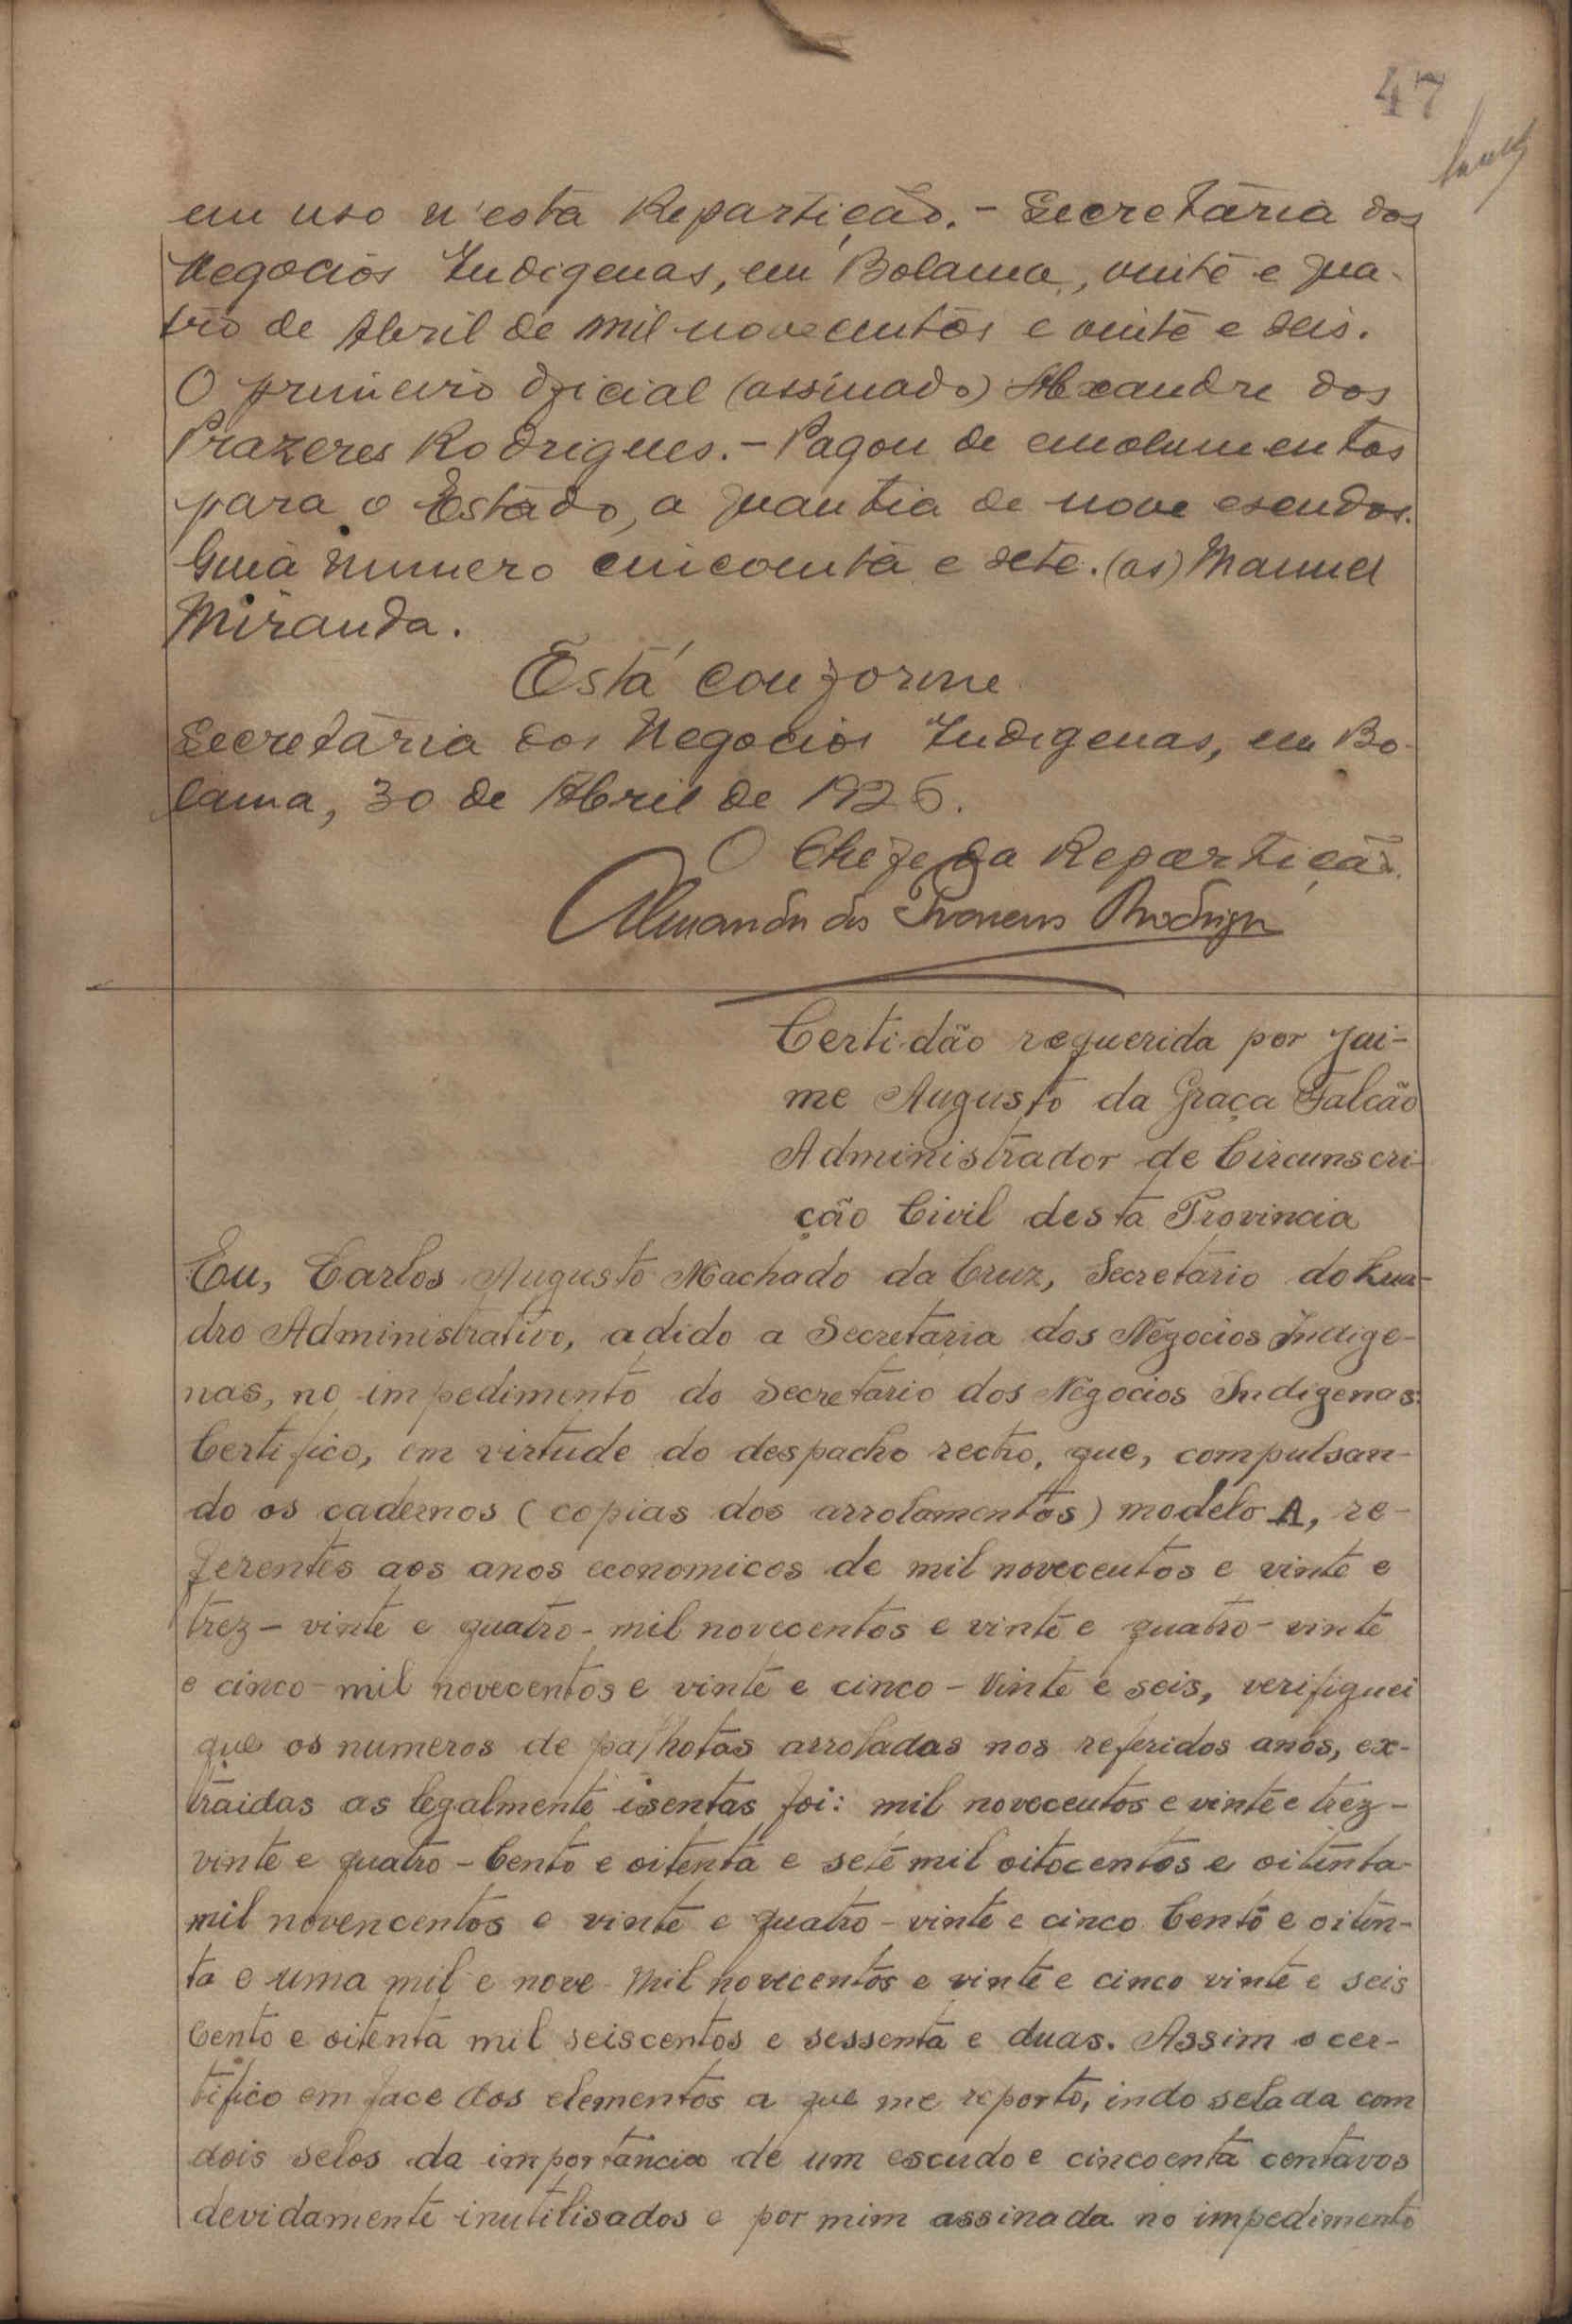 47
em uso n'esta Repartição. - Secretaria dos
Negocios Indigenas, em Bolama, vinte e qua-
tro de Abril de mil novecentos e vinte e seis.
O primeiro oficial (assinado) Alexandre dos
Prazeres Rodrigues. - Pagou de emolumentos
para o Estado, a quantia de nove escudos.
Guia numero cincoenta e sete. (as) Manuel
Miranda.
Está conforme
Secretaria dos Negocios Indigenas, em Bo-
lama, 30 de Abril de 1926.
O Chefe da Repartição.
dos Prazeres Rodrigues
Certidão requerida por Jai-
me Augusto da Graça Falcão
Administrador de Circunscri-
ção Civil desta Provincia
Eu, Carlos Augusto Machado da Cruz, Secretario do Qua-
dro Administrativo, adido a Secretaria dos Negocios Indige-
nas, no impedimento do Secretario dos Negocios Indigenas:
Certifico, em virtude do despacho rectro, que, compulsan-
do os cadernos (copias dos arrolamentos) modelo A, re-
ferentes aos anos economicos de mil novecentos e vinte e
trez - vinte e quatro - mil novecentos e vinte e quatro - vinte
e cinco - mil novecentos e vinte e cinco - Vinte e seis, verifiquei
que os numeros de palhotas arroladas nos referidos anos, ex-
traidas as legalmente isentas foi: mil novecentos e vinte e trez -
vinte e quatro - Cento e oitenta e sete mil oitocentos e oitenta -
mil novencentos e vinte e quatro - vinte e cinco Cento e oiten-
ta e uma mil e nove - Mil novecentos e vinte e cinco vinte e seis
Cento e oitenta mil seiscentos e sessenta e duas. Assim o cer-
tifico em face dos elementos a que me reporto, indo selada com
dois selos da importancia de um escudo e cincoenta centavos
devidamente inutilisados e por mim assinada no impedimento